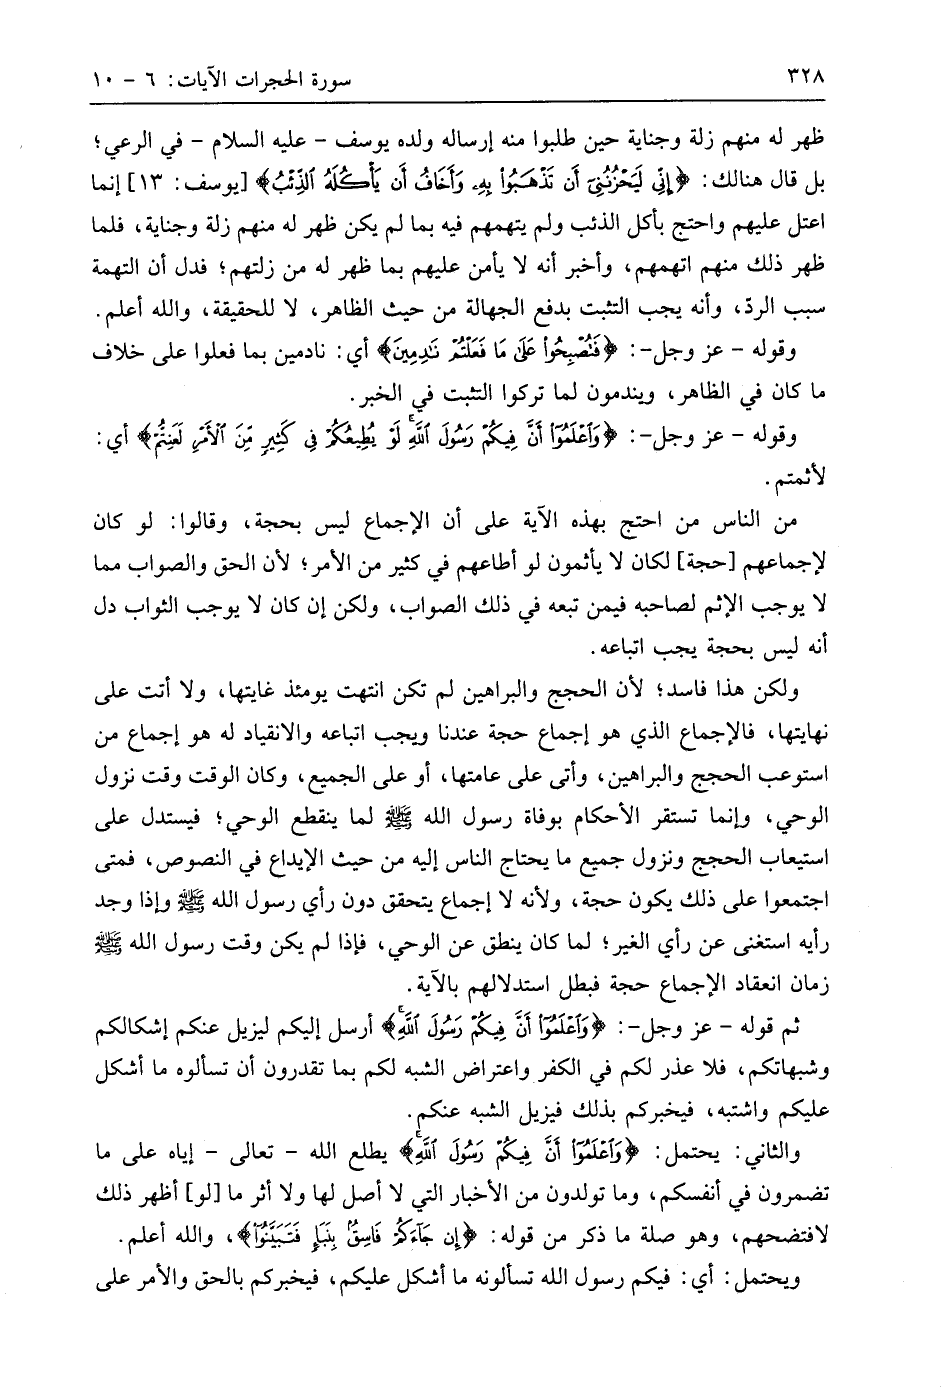 ٣٢٨ سورة الحجرات الآيات: ٦ - ١٠
ظهر له منهم زلة وجناية حين طلبوا منه إرساله ولده يوسف - عليه السلام - في الرعي؛
بل قال هنالك: ﴿إِنِّي لَيَحْزُنُنِيٓ أَن تَذْهَبُوا۟ بِهِۦ وَأَخَافُ أَن يَأْكُلَهُ ٱلذِّئْبُ﴾ [يوسف: ١٣] إنما
اعتل عليهم واحتج بأكل الذئب ولم يتهمهم فيه بما لم يكن ظهر له منهم زلة وجناية، فلما
ظهر ذلك منهم اتهمهم، وأخبر أنه لا يأمن عليهم بما ظهر له من زلتهم؛ فدل أن التهمة
سبب الردّ، وأنه يجب التثبت بدفع الجهالة من حيث الظاهر، لا للحقيقة، والله أعلم.
وقوله - عز وجل-: ﴿فَتُصْبِحُوا۟ عَلَىٰ مَا فَعَلْتُمْ نَٰدِمِينَ﴾ أي: نادمين بما فعلوا على خلاف
ما كان في الظاهر، ويندمون لما تركوا التثبت في الخبر.
وقوله - عز وجل-: ﴿وَٱعْلَمُوٓا۟ أَنَّ فِيكُمْ رَسُولَ ٱللَّهِۚ لَوْ يُطِيعُكُمْ فِي كَثِيرٍ مِّنَ ٱلْأَمْرِ لَعَنِتُّمْ﴾ أي:
لأثمتم.
من الناس من احتج بهذه الآية على أن الإجماع ليس بحجة، وقالوا: لو كان
لإجماعهم [حجة] لكان لا يأثمون لو أطاعهم في كثير من الأمر؛ لأن الحق والصواب مما
لا يوجب الإثم لصاحبه فيمن تبعه في ذلك الصواب، ولكن إن كان لا يوجب الثواب دل
أنه ليس بحجة يجب اتباعه.
ولكن هذا فاسد؛ لأن الحجج والبراهين لم تكن انتهت يومئذ غايتها، ولا أتت على
نهايتها، فالإجماع الذي هو إجماع حجة عندنا ويجب اتباعه والانقياد له هو إجماع من
استوعب الحجج والبراهين، وأتى على عامتها، أو على الجميع، وكان الوقت وقت نزول
الوحي، وإنما تستقر الأحكام بوفاة رسول الله ﷺ لما ينقطع الوحي؛ فيستدل على
استيعاب الحجج ونزول جميع ما يحتاج الناس إليه من حيث الإيداع في النصوص، فمتى
اجتمعوا على ذلك يكون حجة، ولأنه لا إجماع يتحقق دون رأي رسول الله ﷺ وإذا وجد
رأيه استغنى عن رأي الغير؛ لما كان ينطق عن الوحي، فإذا لم يكن وقت رسول الله ﷺ
زمان انعقاد الإجماع حجة فبطل استدلالهم بالآية.
ثم قوله - عز وجل-: ﴿وَٱعْلَمُوٓا۟ أَنَّ فِيكُمْ رَسُولَ ٱللَّهِۚ﴾ أرسل إليكم ليزيل عنكم إشكالكم
وشبهاتكم، فلا عذر لكم في الكفر واعتراض الشبه لكم بما تقدرون أن تسألوه ما أشكل
عليكم واشتبه، فيخبركم بذلك فيزيل الشبه عنكم.
والثاني: يحتمل: ﴿وَٱعْلَمُوٓا۟ أَنَّ فِيكُمْ رَسُولَ ٱللَّهِۚ﴾ يطلع الله - تعالى - إياه على ما
تضمرون في أنفسكم، وما تولدون من الأخبار التي لا أصل لها ولا أثر ما [لو] أظهر ذلك
لافتضحهم، وهو صلة ما ذكر من قوله: ﴿إِن جَآءَكُمْ فَاسِقٌۢ بِنَبَإٍ فَتَبَيَّنُوٓا۟﴾، والله أعلم.
ويحتمل: أي: فيكم رسول الله تسألونه ما أشكل عليكم، فيخبركم بالحق والأمر على